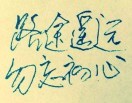 路途遥远
勿忘初心